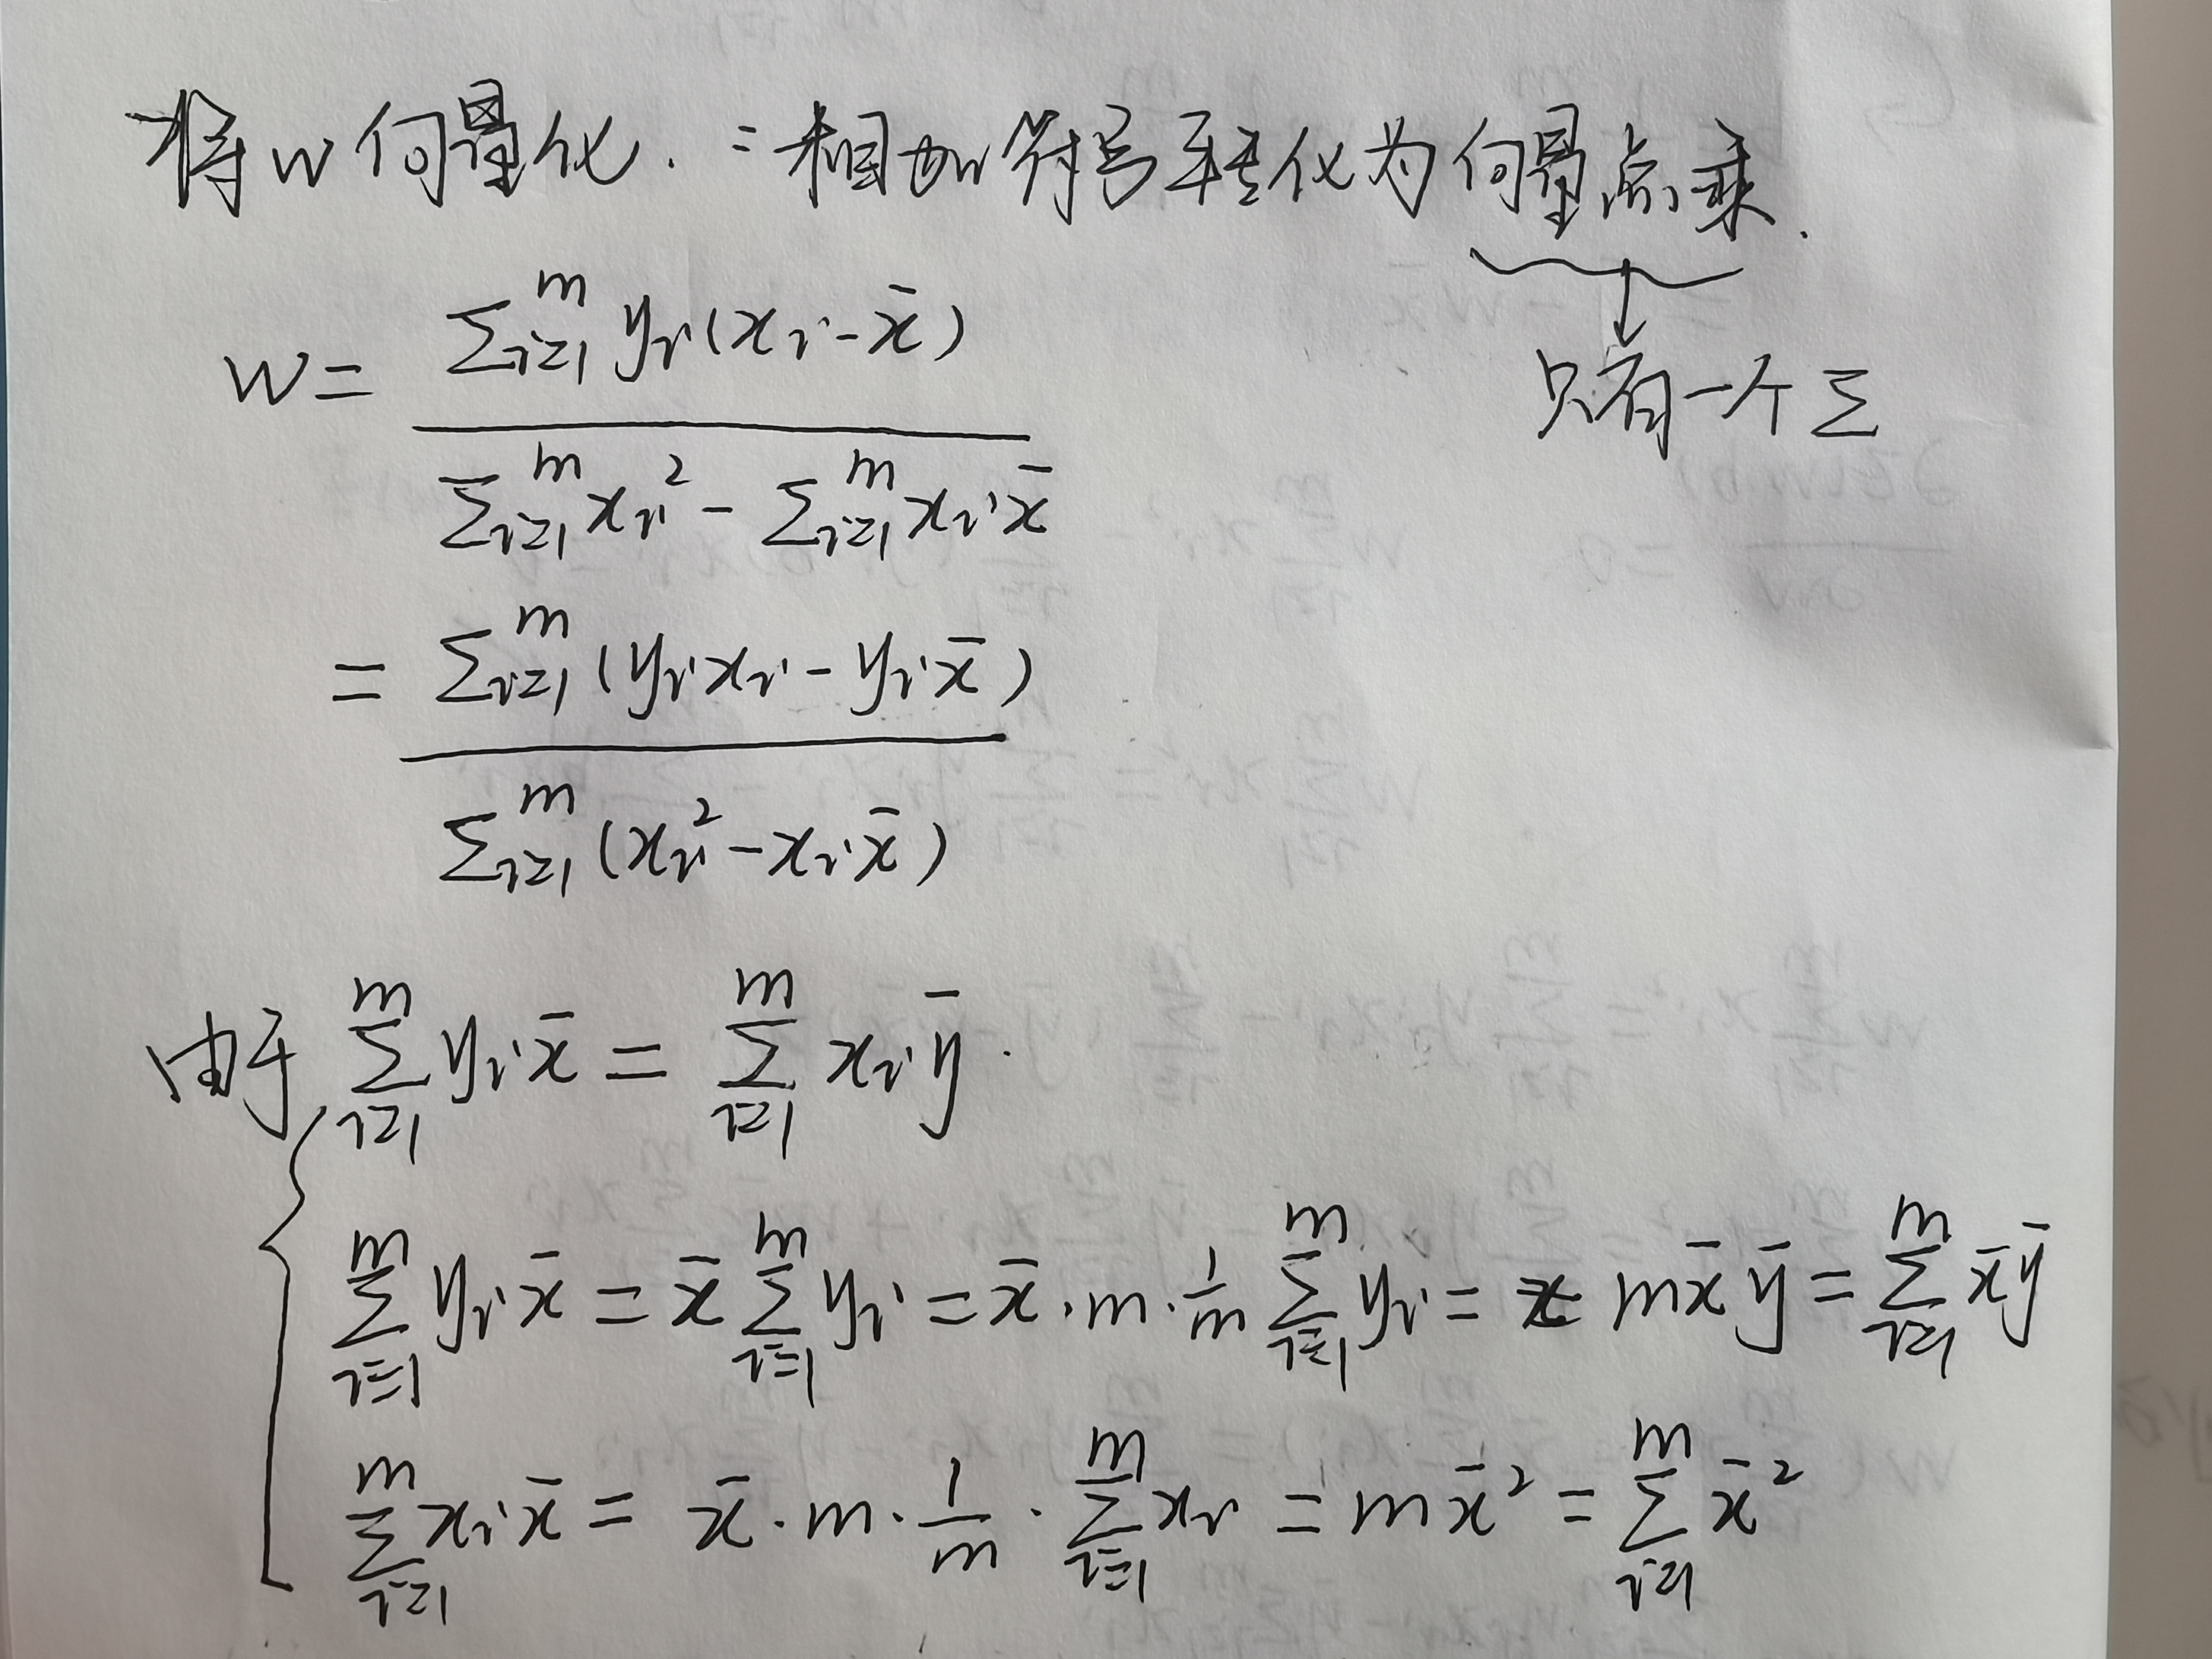 将w向量化. = 相加符号转化为向量点乘.
只有一个 Σ
w = \frac{\sum_{i=1}^{m} y_i (x_i - \bar{x})}{\sum_{i=1}^{m} x_i^2 - \sum_{i=1}^{m} x_i \bar{x}}
= \frac{\sum_{i=1}^{m} (y_i x_i - y_i \bar{x})}{\sum_{i=1}^{m} (x_i^2 - x_i \bar{x})}
由于 \sum_{i=1}^{m} y_i \bar{x} = \sum_{i=1}^{m} x_i \bar{y}.
\sum_{i=1}^{m} y_i \bar{x} = \bar{x} \sum_{i=1}^{m} y_i = \bar{x} \cdot m \cdot \frac{1}{m} \sum_{i=1}^{m} y_i = m \bar{x} \bar{y} = \sum_{i=1}^{m} \bar{x} \bar{y}
\sum_{i=1}^{m} x_i \bar{x} = \bar{x} \cdot m \cdot \frac{1}{m} \cdot \sum_{i=1}^{m} x_i = m \bar{x}^2 = \sum_{i=1}^{m} \bar{x}^2